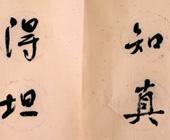 知真
得坦